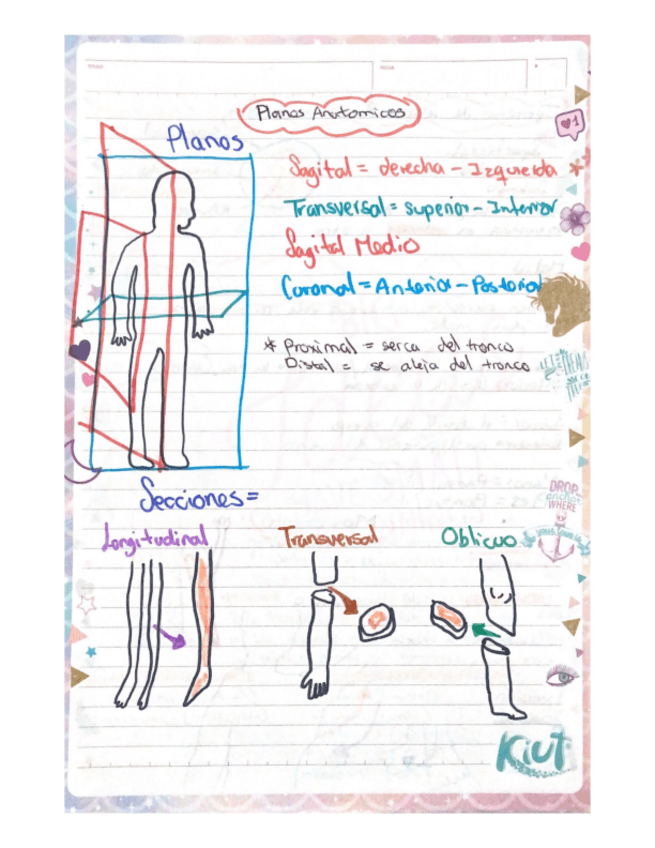 TITULO
FECHA
Planos Anatomicos
Planos
Sagital = derecha - Izquierda
Transversal = superior - Inferior
Sagital Medio
Coronal = Anterior - Posterior
* Proximal = serca del tronco
Distal = se aleja del tronco
Secciones =
Longitudinal
Transversal
Oblicuo
DROP
anchor
WHERE
Kiut